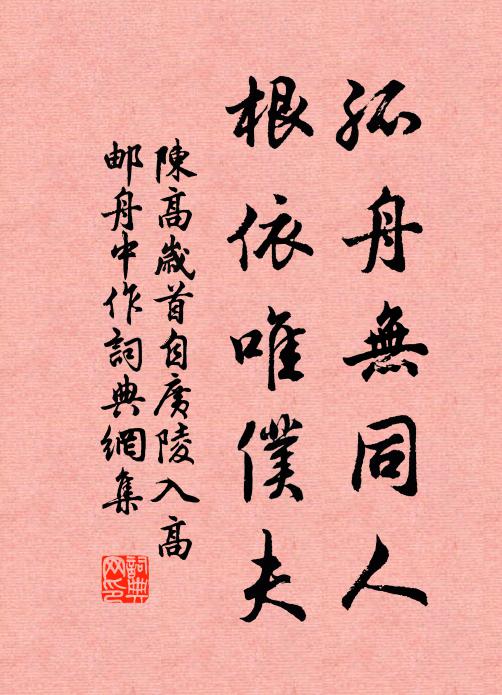 孤舟無同人
根依唯僕夫
陳高歲首自廣陵入高
邮舟中作詞典網集
詞典网印